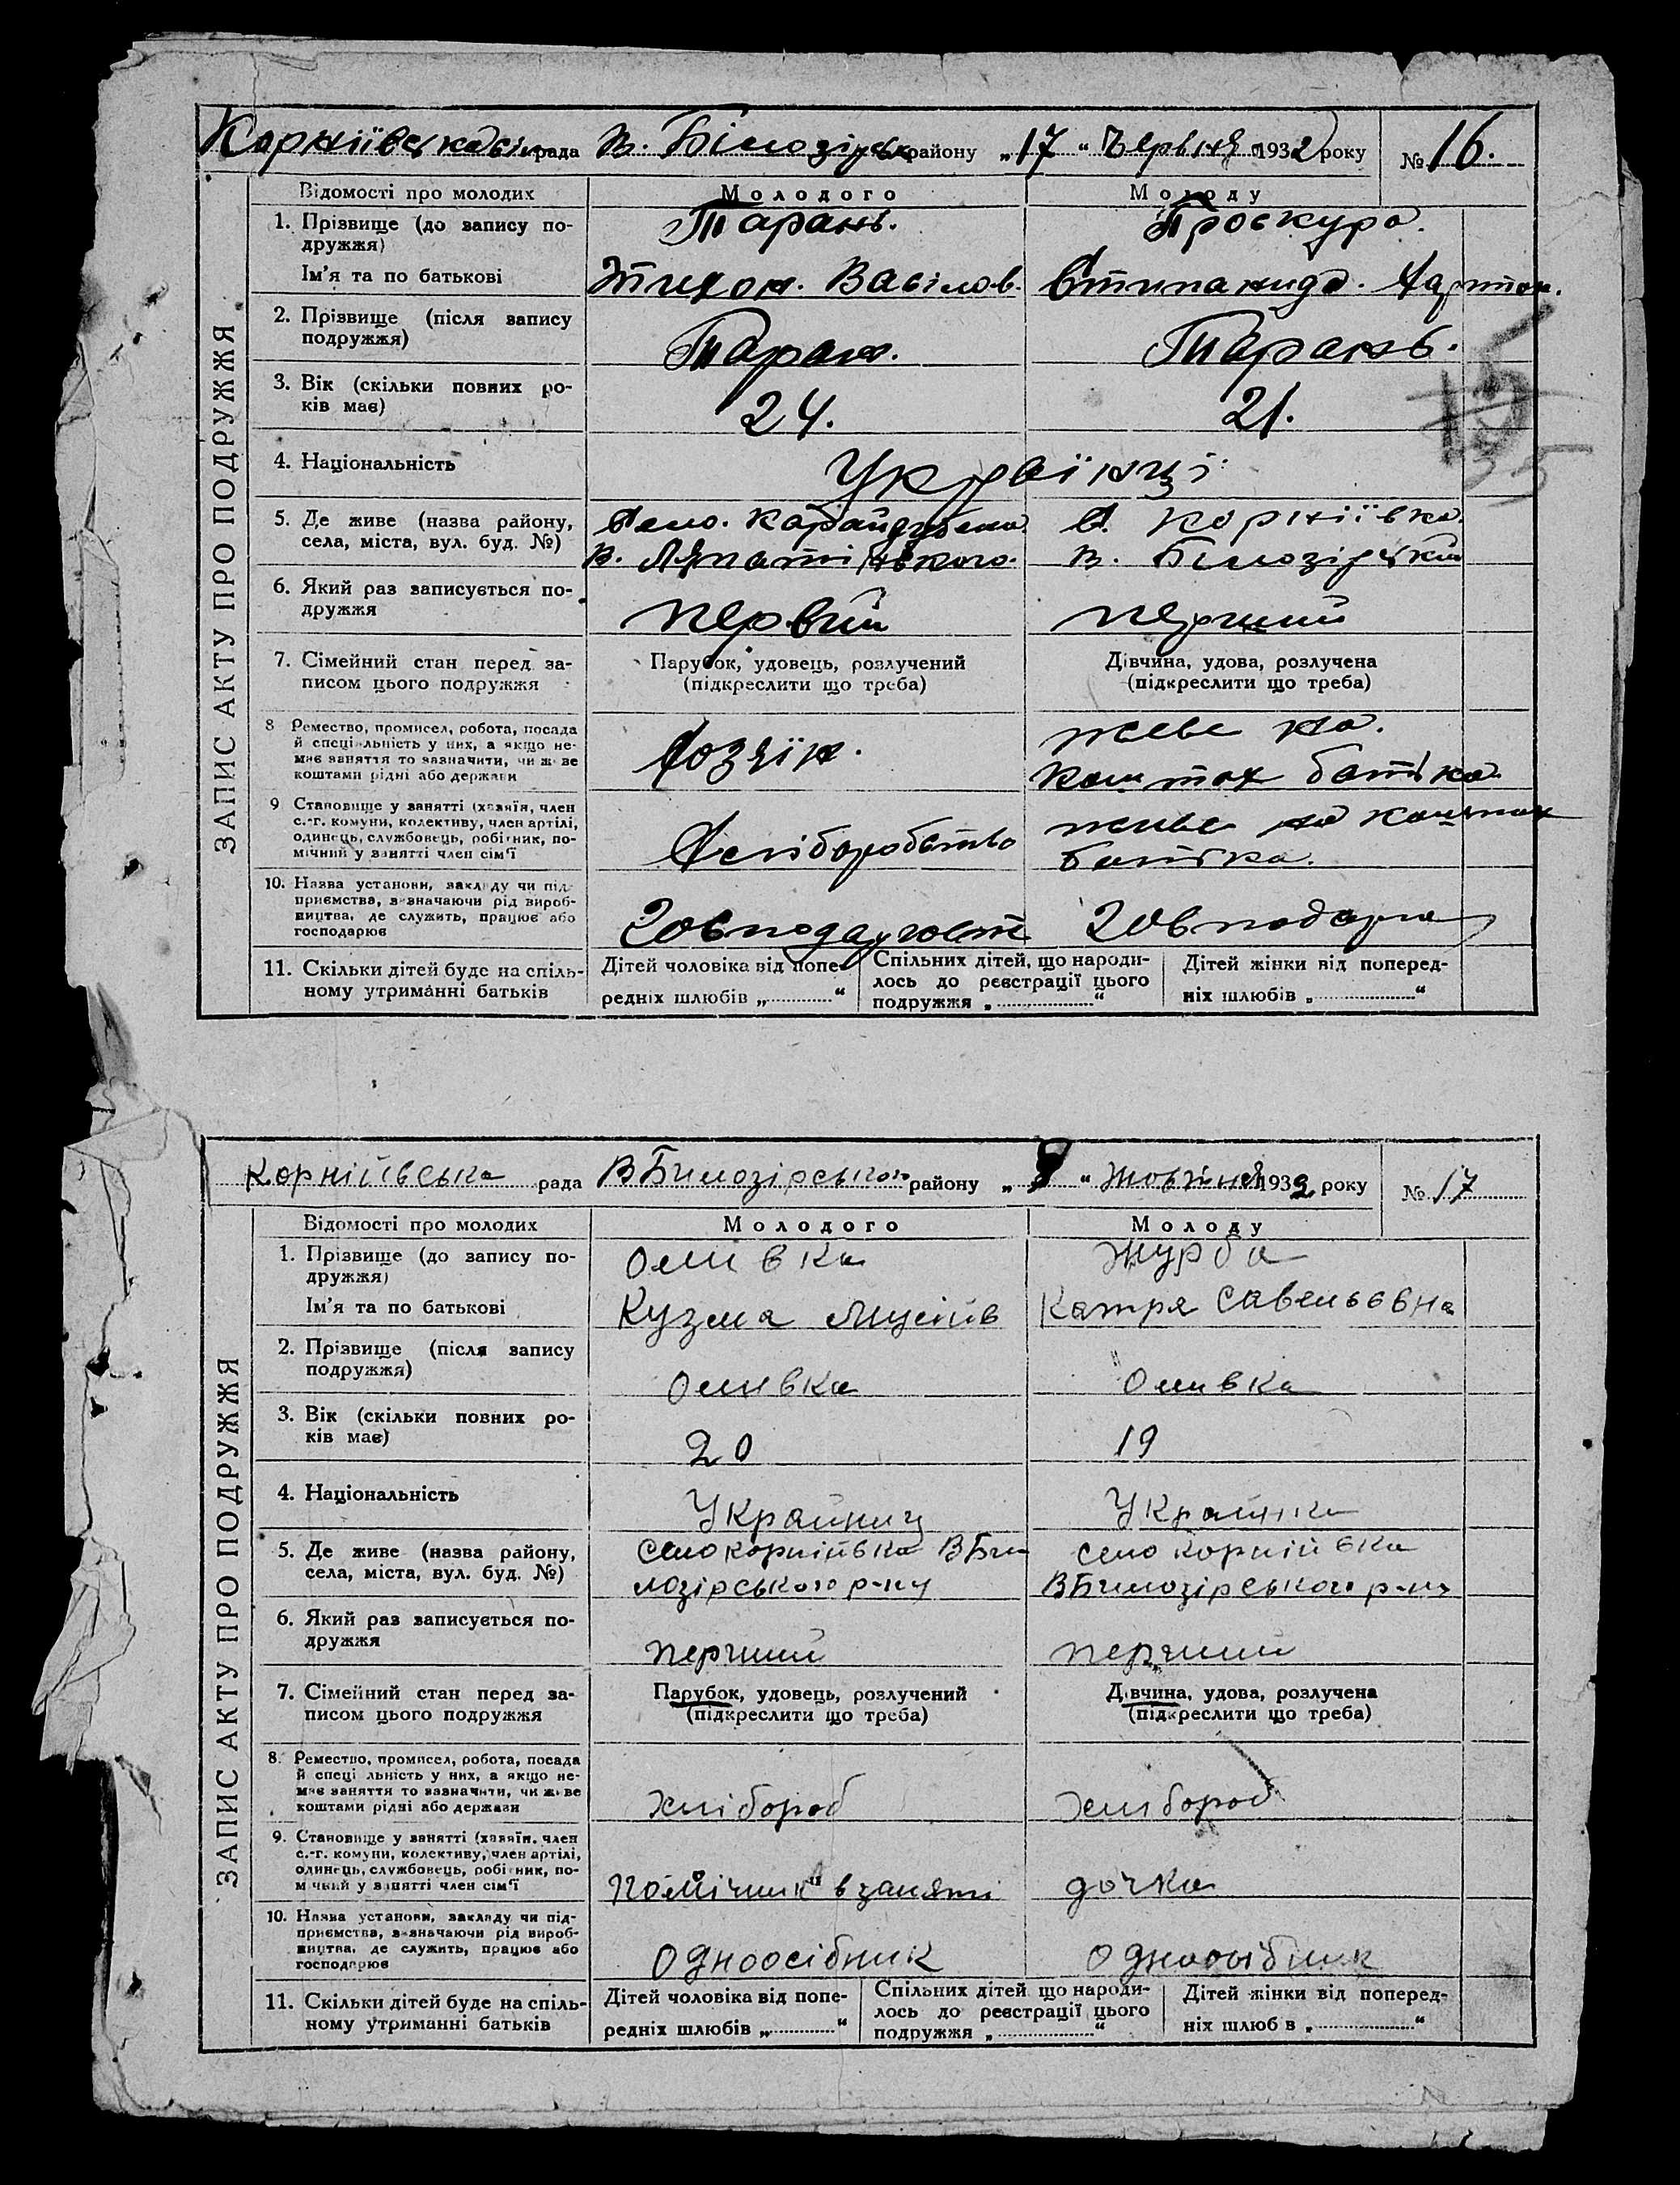 Корніївська сіль рада В. Білозірськ району „17“ Червня 1932 року №16.
ЗАПИС АКТУ ПРО ПОДРУЖЖЯ
Відомості про молодих Молодого Молоду
1. Прізвище (до запису по-
дружжя) Тарань. Проскура.
Ім'я та по батькові Тихон. Васілов.
2. Прізвище (після запису
подружжя) Таран. Тарань.
3. Вік (скільки повних ро-
ків має) 24. 21.
4. Національність Українці
5. Де живе (назва району, Село. С. Корніївка.
села, міста, вул. буд. №) В. В. Білозірський
6. Який раз записується по-
дружжя первий перший
7. Сімейний стан перед за- Парубок, удовець, розлучений Дівчина, удова, розлучена
писом цього подружжя (підкреслити що треба) (підкреслити що треба)
8 Ремество, промисел, робота, посада живе на.
й спеціяльність у них, а якщо не-
має заняття то зазначити, чи живе Хозяїн. коштах батька.
коштами рідні або держави
9 Становище у занятті (хазяїн, член живе на коштах
с.-г. комуни, колективу, член артілі,
одинець, службовець, робітник, по- Хсліборобство батька.
мічний у занятті член сім'ї
10. Назва установи, закладу чи під-
приємства, зазначаючи рід вироб-
ництва, де служить, працює або
господарює
11. Скільки дітей буде на спіль- Дітей чоловіка від попе- Спільних дітей, що народи- Дітей жінки від поперед-
ному утриманні батьків редніх шлюбів „ “ лось до реєстрації цього ніх шлюбів „ “
подружжя „ “
Корнійівська рада ВБилозірського району „8“ Жовтня 1932 року №17
ЗАПИС АКТУ ПРО ПОДРУЖЖЯ
Відомості про молодих Молодого Молоду
1. Прізвище (до запису по-
дружжя) Оливка Журба
Ім'я та по батькові Кузма Мусійів Катря Савельєвна
2. Прізвище (після запису
подружжя) Оливка Оливка
3. Вік (скільки повних ро-
ків має) 20 19
4. Національність Украйниц Украйнка
5. Де живе (назва району, село корнійівка ВБи село корнійівка
села, міста, вул. буд. №) лозірського р-ну ВБилозірського р-ну
6. Який раз записується по-
дружжя перший перший
7. Сімейний стан перед за- Парубок, удовець, розлучений Дівчина, удова, розлучена
писом цього подружжя (підкреслити що треба) (підкреслити що треба)
8. Ремество, промисел, робота, посада
й спеціяльність у них, а якщо не-
має заняття то зазначити, чи живе
коштами рідні або держави хлібороб хлибороб
9. Становище у занятті (хазяїн, член
с.-г. комуни, колективу, член артілі,
одинець, службовець, робітник, по-
мічний у занятті член сім'ї помічник в заняті дочка
10. Назва установи, закладу чи під-
приємства, зазначаючи рід вироб-
ництва, де служить, працює або
господарює Одноосібник Одноосібник
11. Скільки дітей буде на спіль- Дітей чоловіка від попе- Спільних дітей що народи- Дітей жінки від поперед-
ному утриманні батьків редніх шлюбів „ “ лось до реєстрації цього ніх шлюбів „ “
подружжя „ “